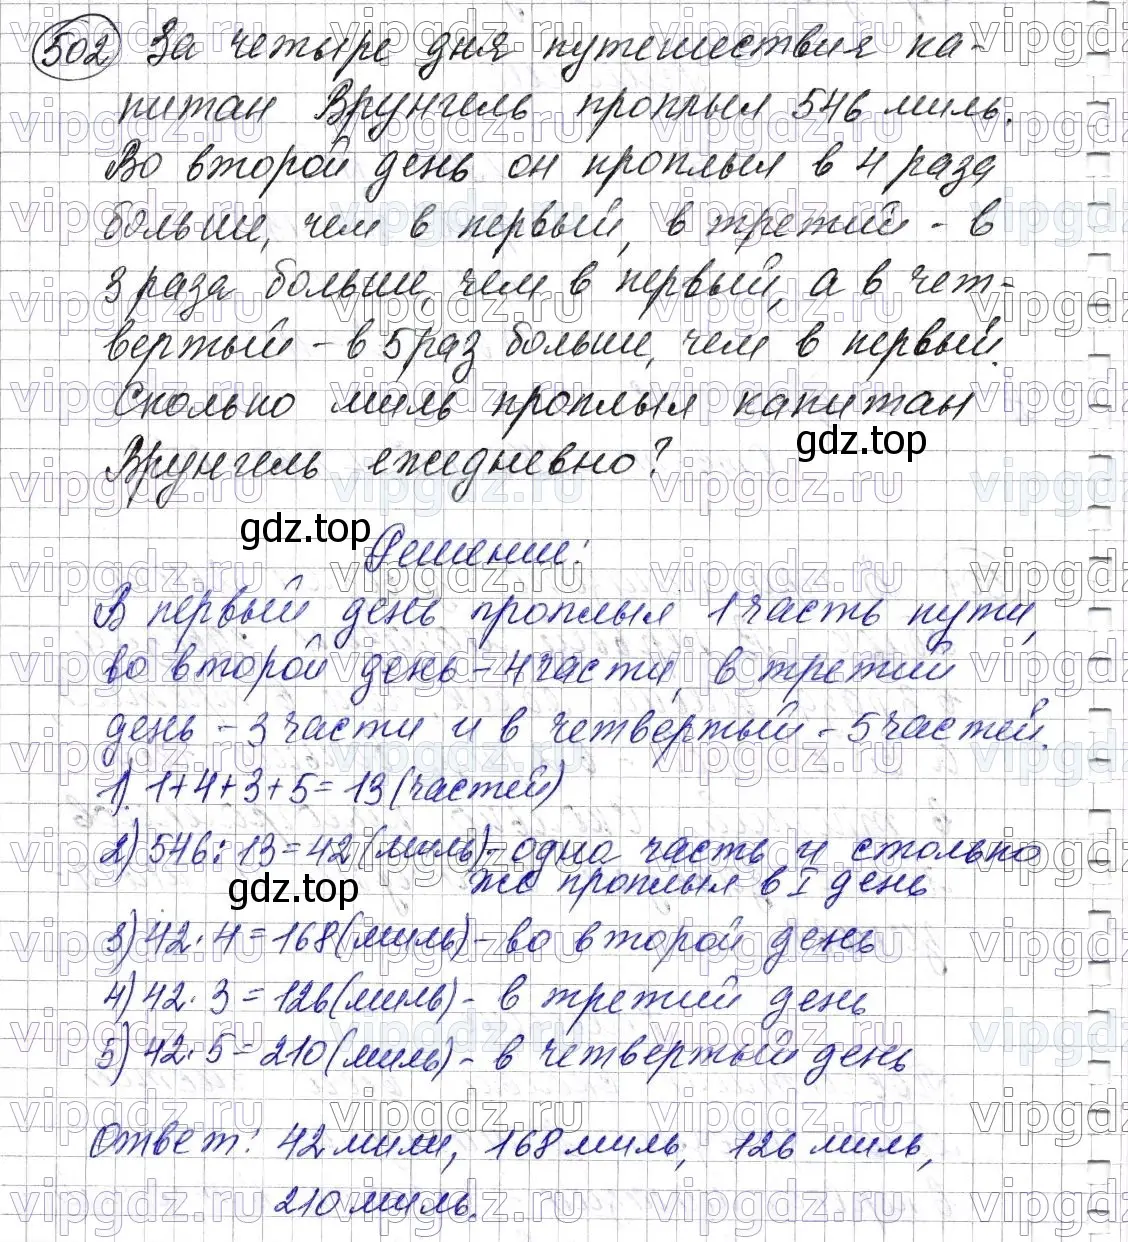 502 За четыре дня путешествия ка-
питан Врунгель проплыл 546 миль.
Во второй день он проплыл в 4 раза
больше, чем в первый, в третий - в
3 раза больше, чем в первый, а в чет-
вертый - в 5 раз больше, чем в первый.
Сколько миль проплыл капитан
gdz.top
Врунгель ежедневно?
gdz.top
Решение:
В первый день проплыл 1 часть пути,
во второй день - 4 части, в третий
день - 3 части и в четвёртый - 5 частей.
1) 1+4+3+5=13 (частей)
2) 546:13=42 (миль) - одна часть и столько
же проплыл в I день
gdz.top
3) 42·4=168 (миль) - во второй день
4) 42·3=126 (миль) - в третий день
5) 42·5=210 (миль) - в четвертый день
Ответ: 42 мили, 168 миль, 126 миль,
210 миль.
vipgdz.ru